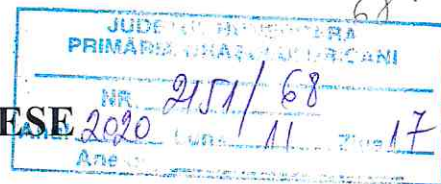 68
JUDEȚUL HUNEDOARA
PRIMĂRIA ORAȘULUI URICANI
NR. 2151/68
ESE
Anul 2020 Luna 11 Ziua 17
Anexe